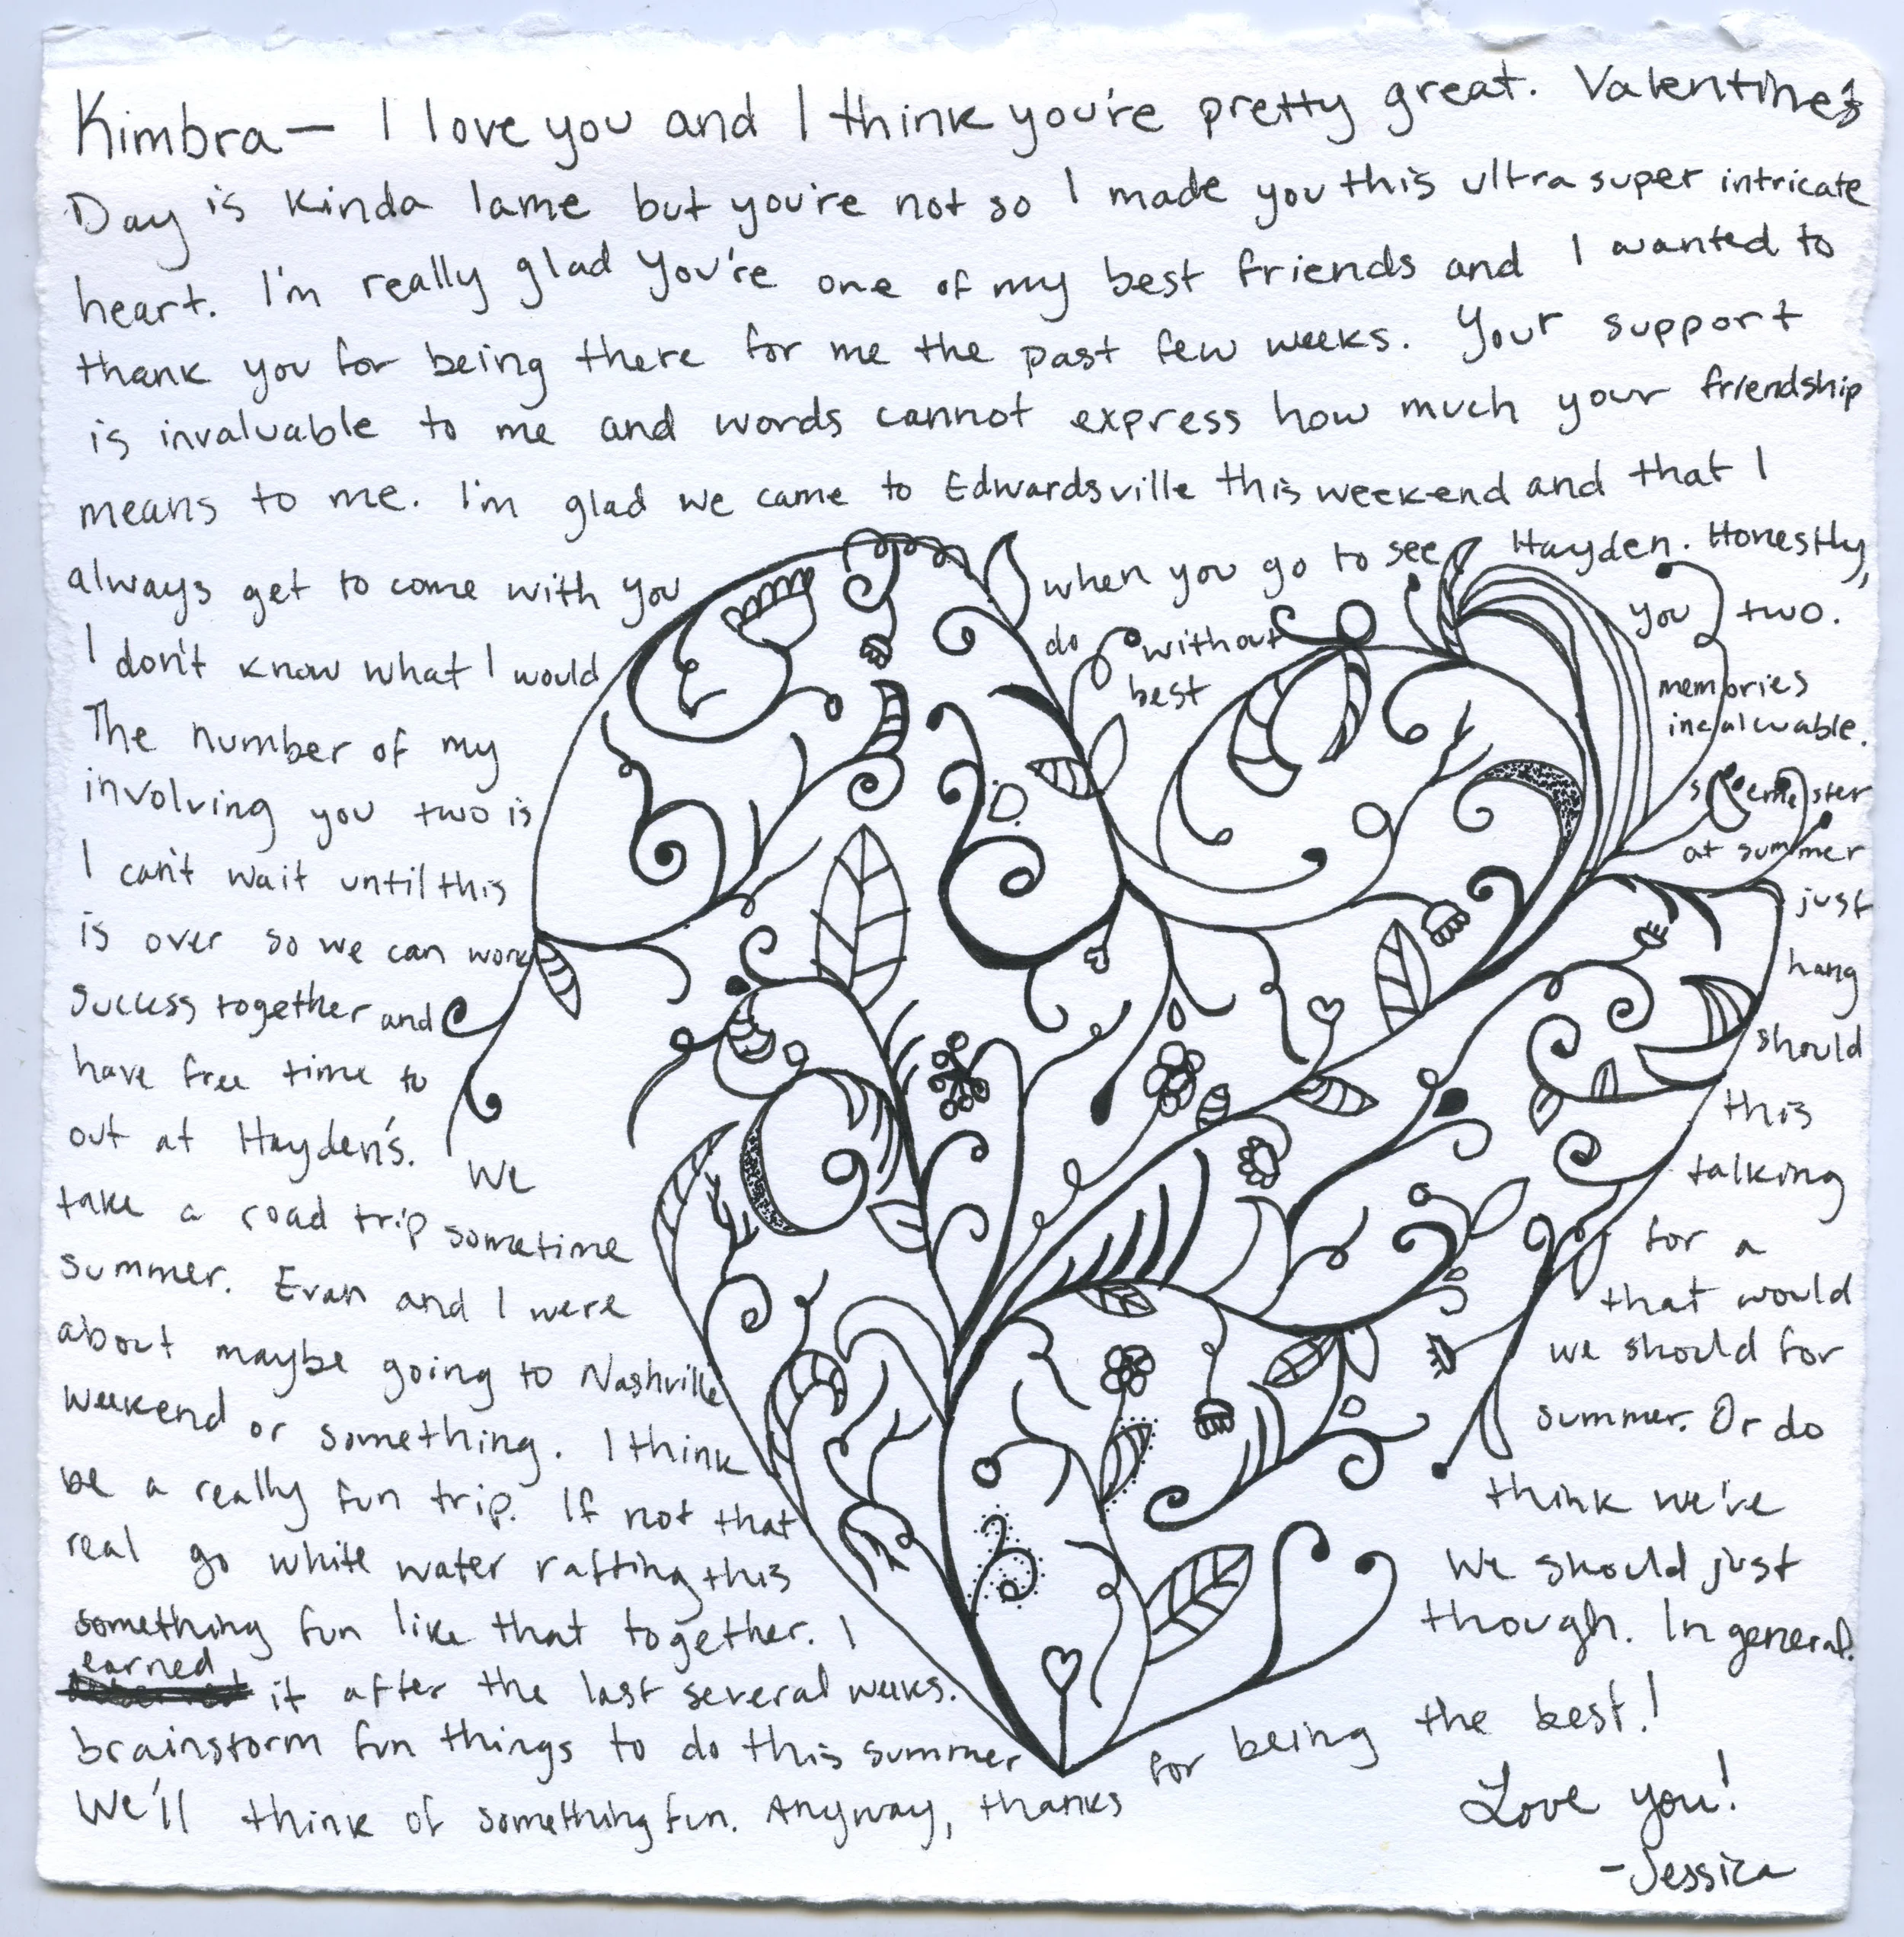 Kimbra— I love you and I think you're pretty great. Valentines
Day is kinda lame but you're not so I made you this ultra super intricate
heart. I'm really glad you're one of my best friends and I wanted to
thank you for being there for me the past few weeks. Your support
is invaluable to me and words cannot express how much your friendship
means to me. I'm glad we came to Edwardsville this weekend and that I
always get to come with you when you go to see Hayden. Honestly,
I don't know what I would do without you two.
The number of my best memories
involving you two is incalwable.
I can't wait until this semester
is over so we can work at summer
success together and just
have free time to hang
out at Hayden's. We should
take a road trip sometime this
summer. Evan and I were talking
about maybe going to Nashville for a
weekend or something. I think that would
be a really fun trip. If not that we should for
real go white water rafting this summer. Or do
something fun like that together. I think we've
earned it after the last several weeks. We should just
brainstorm fun things to do this summer though. In general.
We'll think of something fun. Anyway, thanks for being the best!
Love you!
-Jessica